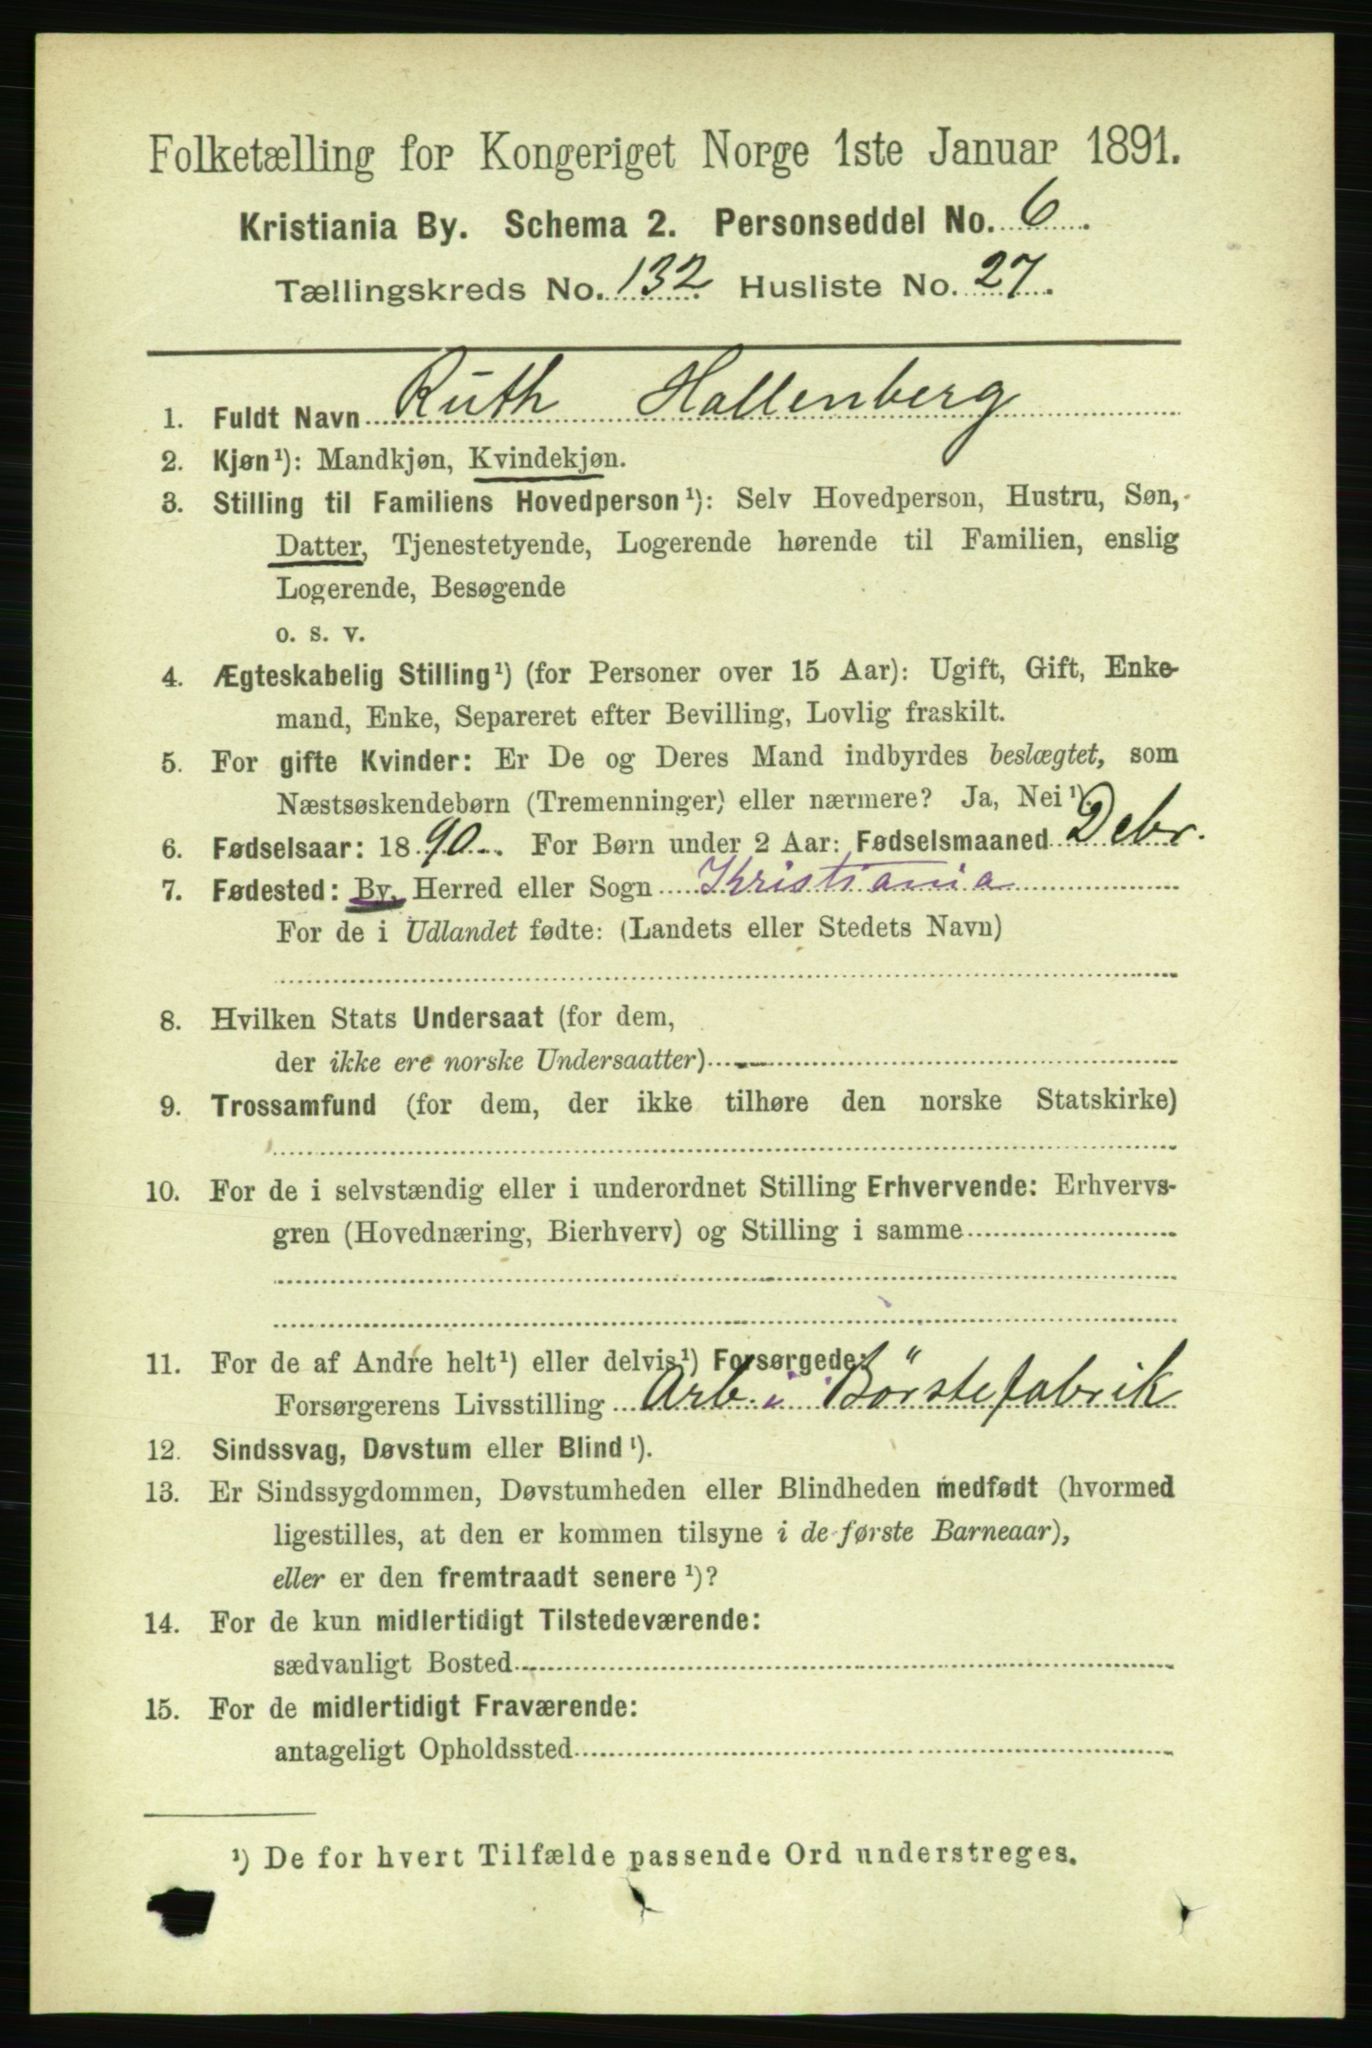 Folketælling for Kongeriget Norge 1ste Januar 1891.
Kristiania By. Schema 2. Personseddel No. 6.
Tællingskreds No. 132 Husliste No. 27.
1. Fuldt Navn Ruth Hallenberg
2. Kjøn¹): Mandkjøn, Kvindekjøn.
3. Stilling til Familiens Hovedperson¹): Selv Hovedperson, Hustru, Søn,
Datter, Tjenestetyende, Logerende hørende til Familien, enslig
Logerende, Besøgende
o. s. v.
4. Ægteskabelig Stilling¹) (for Personer over 15 Aar): Ugift, Gift, Enke-
mand, Enke, Separeret efter Bevilling, Lovlig fraskilt.
5. For gifte Kvinder: Er De og Deres Mand indbyrdes beslægtet, som
Næstsøskendebørn (Tremenninger) eller nærmere? Ja, Nei¹).
6. Fødselsaar: 1890. For Børn under 2 Aar: Fødselsmaaned Debr.
7. Fødested: By, Herred eller Sogn Kristiania
For de i Udlandet fødte: (Landets eller Stedets Navn)
8. Hvilken Stats Undersaat (for dem,
der ikke ere norske Undersaatter)
9. Trossamfund (for dem, der ikke tilhøre den norske Statskirke)
10. For de i selvstændig eller i underordnet Stilling Erhvervende: Erhvervs-
gren (Hovednæring, Bierhverv) og Stilling i samme
11. For de af Andre helt¹) eller delvis¹) Forsørgede:
Forsørgerens Livsstilling Arb. i Börstefabrik
12. Sindssvag, Døvstum eller Blind¹).
13. Er Sindssygdommen, Døvstumheden eller Blindheden medfødt (hvormed
ligestilles, at den er kommen tilsyne i de første Barneaar),
eller er den fremtraadt senere¹)?
14. For de kun midlertidigt Tilstedeværende:
sædvanligt Bosted
15. For de midlertidigt Fraværende:
antageligt Opholdssted
¹) De for hvert Tilfælde passende Ord understreges.